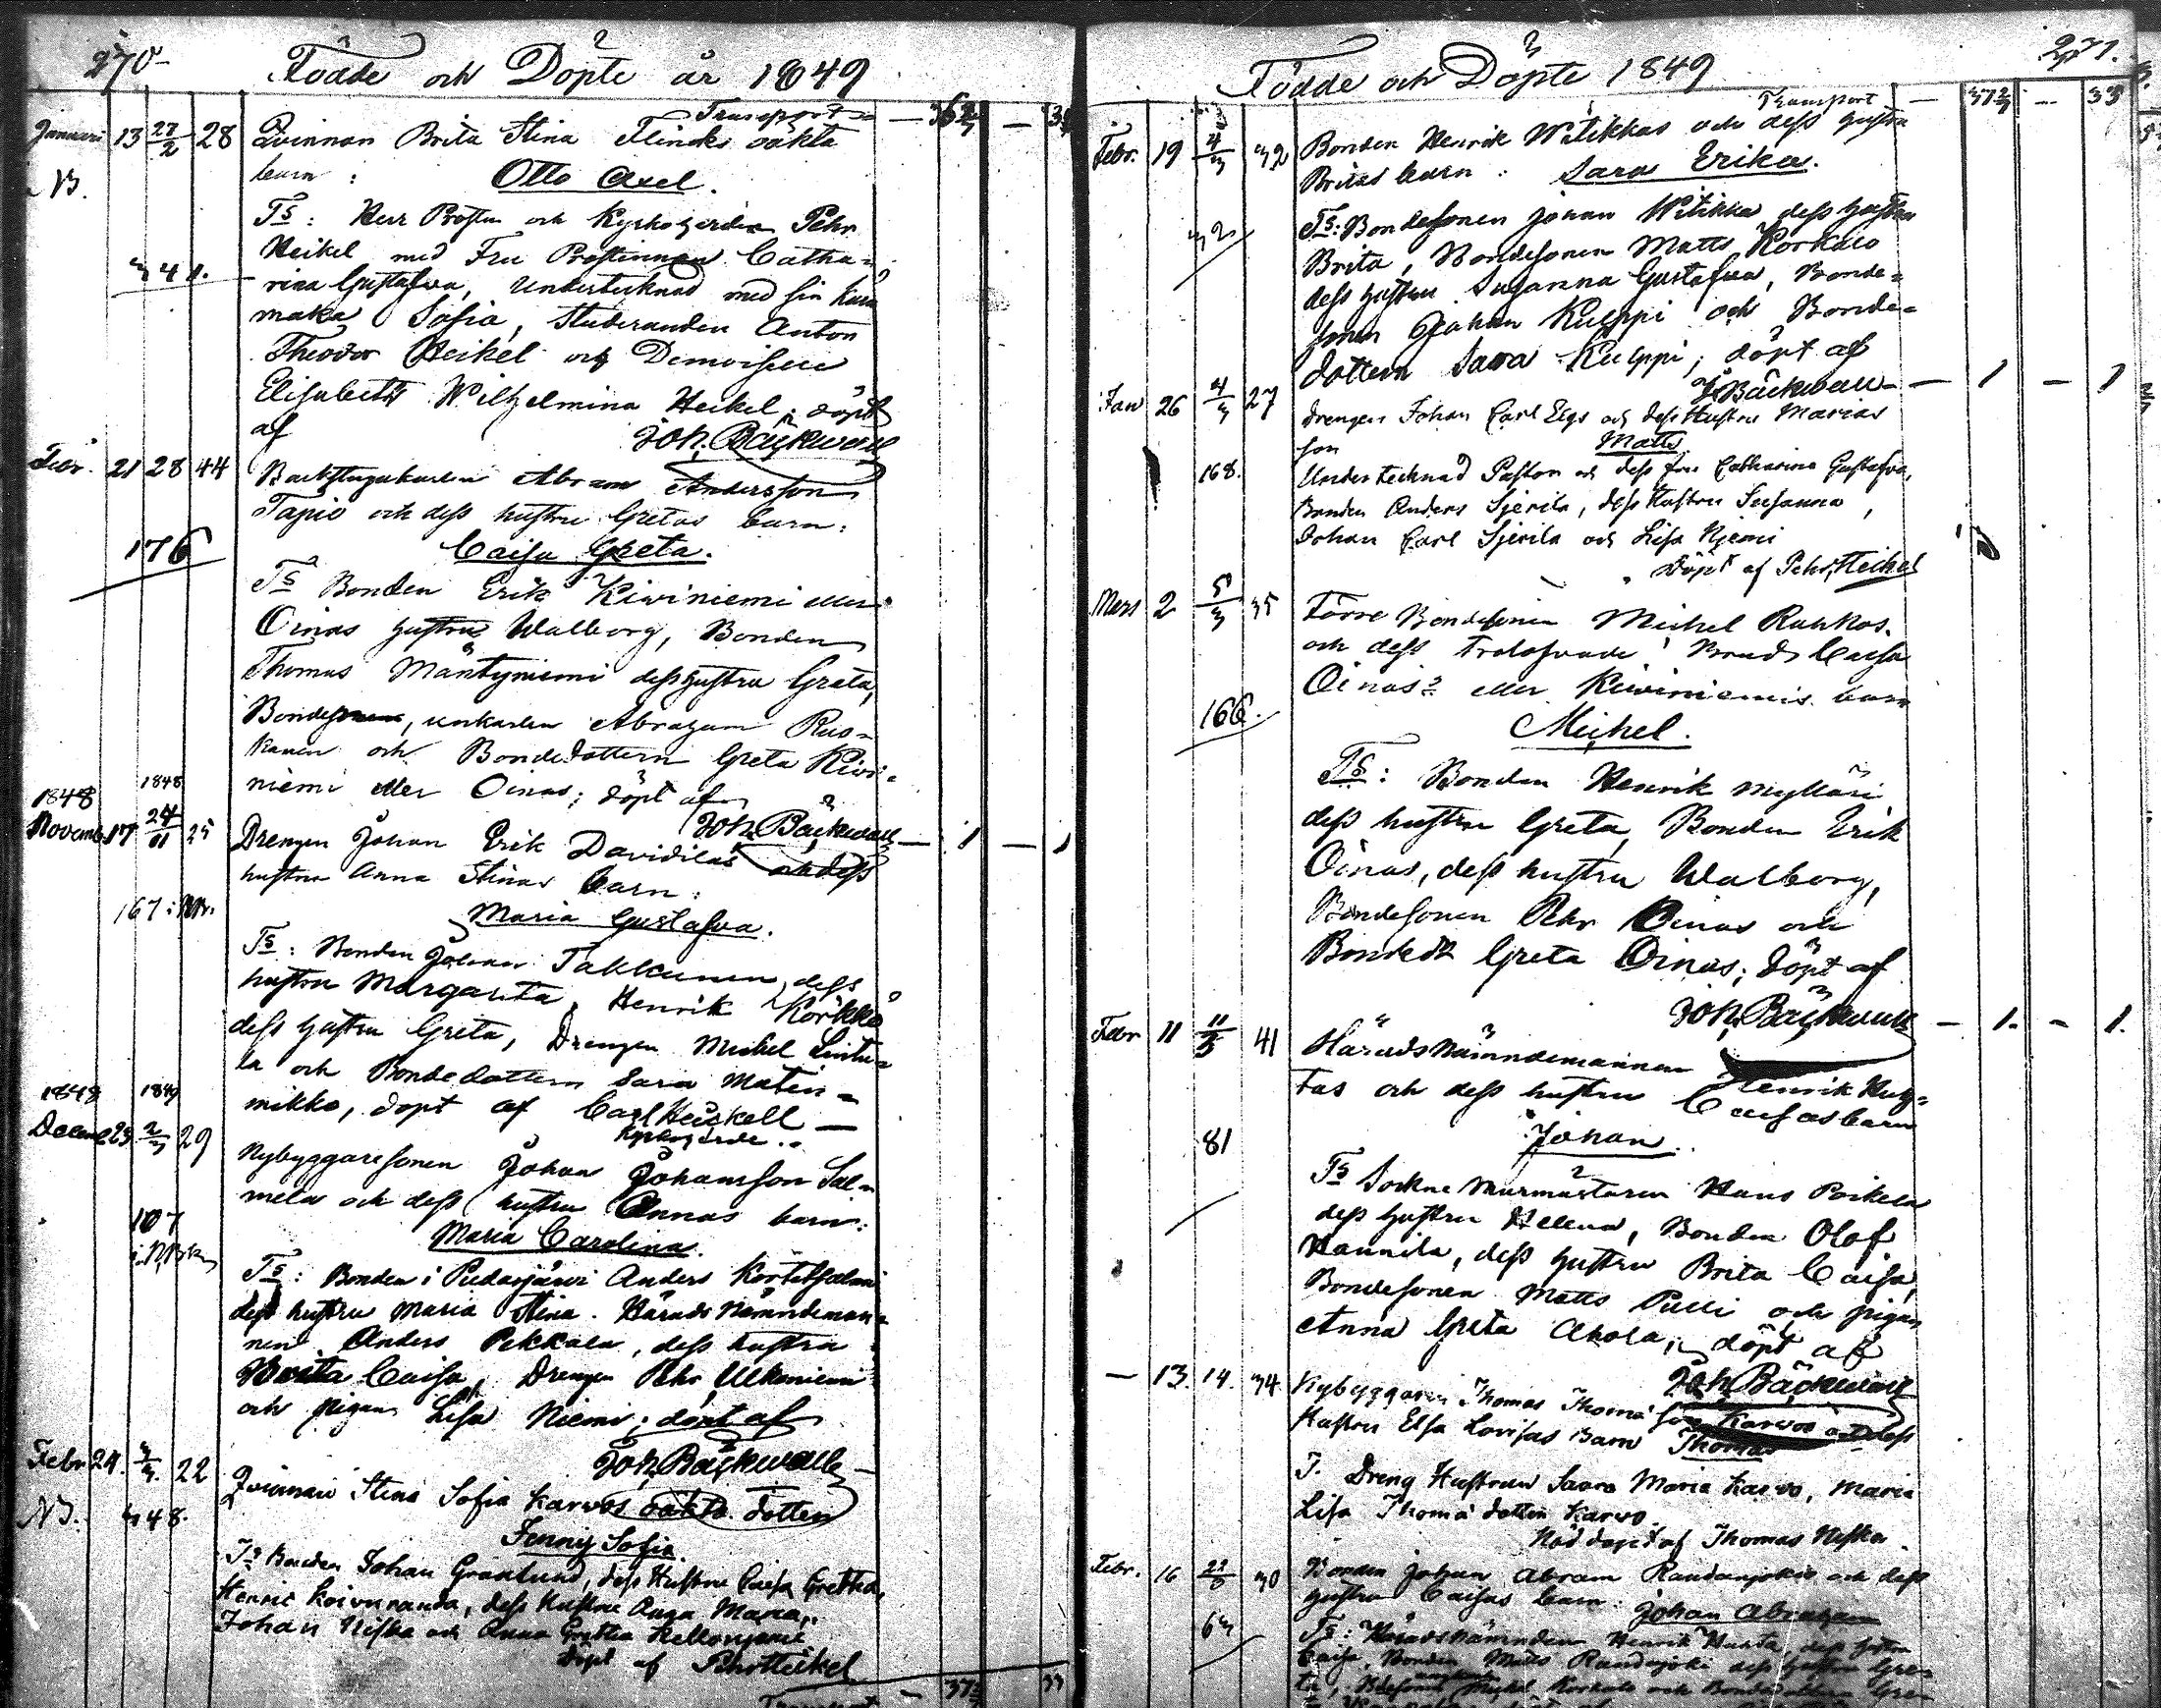 270
Födde och Döpte år 1849
Transport
Januari 13 27/2 28 Qvinnan Brita Stina Flincks oäkta
NB. barn: Otto Axel.
Ts: Herr Prosten och Kyrkoherden Pehr
Heikel med Fru Prostinnan Catha=
341. rina Gustafva, Undertecknad med sin kära
maka Sofia, Studeranden Anton
Theodor Heikel och Demoiselle
Elisabeth Wilhelmina Heikel; döpt
af Joh. Bäckwall
Febr. 21 28 44 Backstugukarlen Abram Andersson
Tapio och dess hustru Gretas barn:
176 Caisa Greta.
Ts Bonden Erik Kiviniemi eller
Oinas hustru Walborg, Bonden
Thomas Mäntyniemi dess hustru Greta,
unkarlen Abraham Rus=
kanen och Bondedottern Greta Kivi=
1848 niemi eller Oinas; döpt af
Joh. Bäckwall
1848 Novemb. 17 24/11 25 Drengen Johan Erik Davidilas och dess 1 1
hustru Anna Stinas barn:
167 Maria Gustafva.
Ts: Bonden Johan Takkunen, dess
hustru Margareta, Henrik Körkkö
dess hustru Greta, Drengen Michel Lintu=
la och Bondedottern Sara Matin=
1848 1849 mikko, döpt af Carl Heickell
Decemb 23 2/3 29 Nybyggaresonen Johan Johansson Sal=
mela och dess hustru Annas barn:
107 Maria Carolina.
Ts: Bonden i Pudasjärvi Anders
dess hustru Maria Stina. Härads Nämndeman=
nen Anders Pekkala, dess hustru
Brita Caisa, Drengen Pehr Ulkoniemi
och Pigan Lisa Niemi; döpt af
Joh. Bäckwall
Febr. 24. 3/3. 22 Qvinnan Stina Sofia Karvos oäkta dotter
NB. 348. Jenny Sofia.
Ts Bonden Johan Granlund, dess Hustru Caisa Gretha,
Henric Koivuranta, dess Hustru Anna Maria,
Johan Niska och Anna Gretha Kellonjemi
Döpt af Pehr Heikel
Transport
271.
Födde och Döpte 1849
Transport
Febr. 19 4/3 32 Bonden Henrik Witikkas och dess hustru
Britas barn: Sara Erika.
32 Ts: Bondesonen Johan Witikka dess hustru
Brita, Bondesonen Matts Korkalo
dess hustru Susanna Gustafva, Bonde=
sonen Johan Kulppi och Bonde=
dottern Sara Kulppi; döpt af
J. Bäckwall 1 1
Jan 26 4/3 27 Drengen Johan Carl Elgs och dess Hustru Marias
son Matts
168. Undertecknad Pastor och dess fru Catharina Gustafva,
Bonden Anders Sjerila, dess Hustru Susanna,
Johan Carl Sjerila och Lisa Njemi
Döpt af Pehr Heikel
Mars 2 5/3 35 Förre Bondesonen Michel Ruhkas
och dess Trolofvade Brud Caisa
Oinas eller Kiviniemis barn
166. Michel.
Ts: Bonden Henrik Mylläri
dess hustru Greta, Bonden Erik
Oinas, dess hustru Walborg,
Bondesonen Pehr Oinas och
Greta Oinas; döpt af
Joh. Bäckwall 1. 1.
Febr 11 11/3 41 Härads Nämndemannen Henrik Huh=
tas och dess hustru Caisas barn
81 Johan.
Ts Sockne Murmästaren Hans Poikela
dess hustru Helena, Bonden Olof
Hannila, dess hustru Brita Caisa,
Bondesonen Matts Pulli och pigan
Anna Greta Ahola, döpt af
Joh. Bäckwall
13. 14. 34 Nybyggaren Thomas Thomä son Karvos o dess
Hustru Elsa Lovisas Barn Thomas
T. Dreng Hustrun Saara Maria Karvo, Maria
Lisa Thomä dotter Karvo.
Nöd döpt af Thomas Niska.
Febr. 16 30 Bonden Johan Abram Raudanjokis och dess
hustru Caisas barn: Johan Abraham
63 Ts: Härads Nämndem Henrik Huhta, dess hustru
Caisa, Bonden Matts Raudanjoki dess hustru Gre=